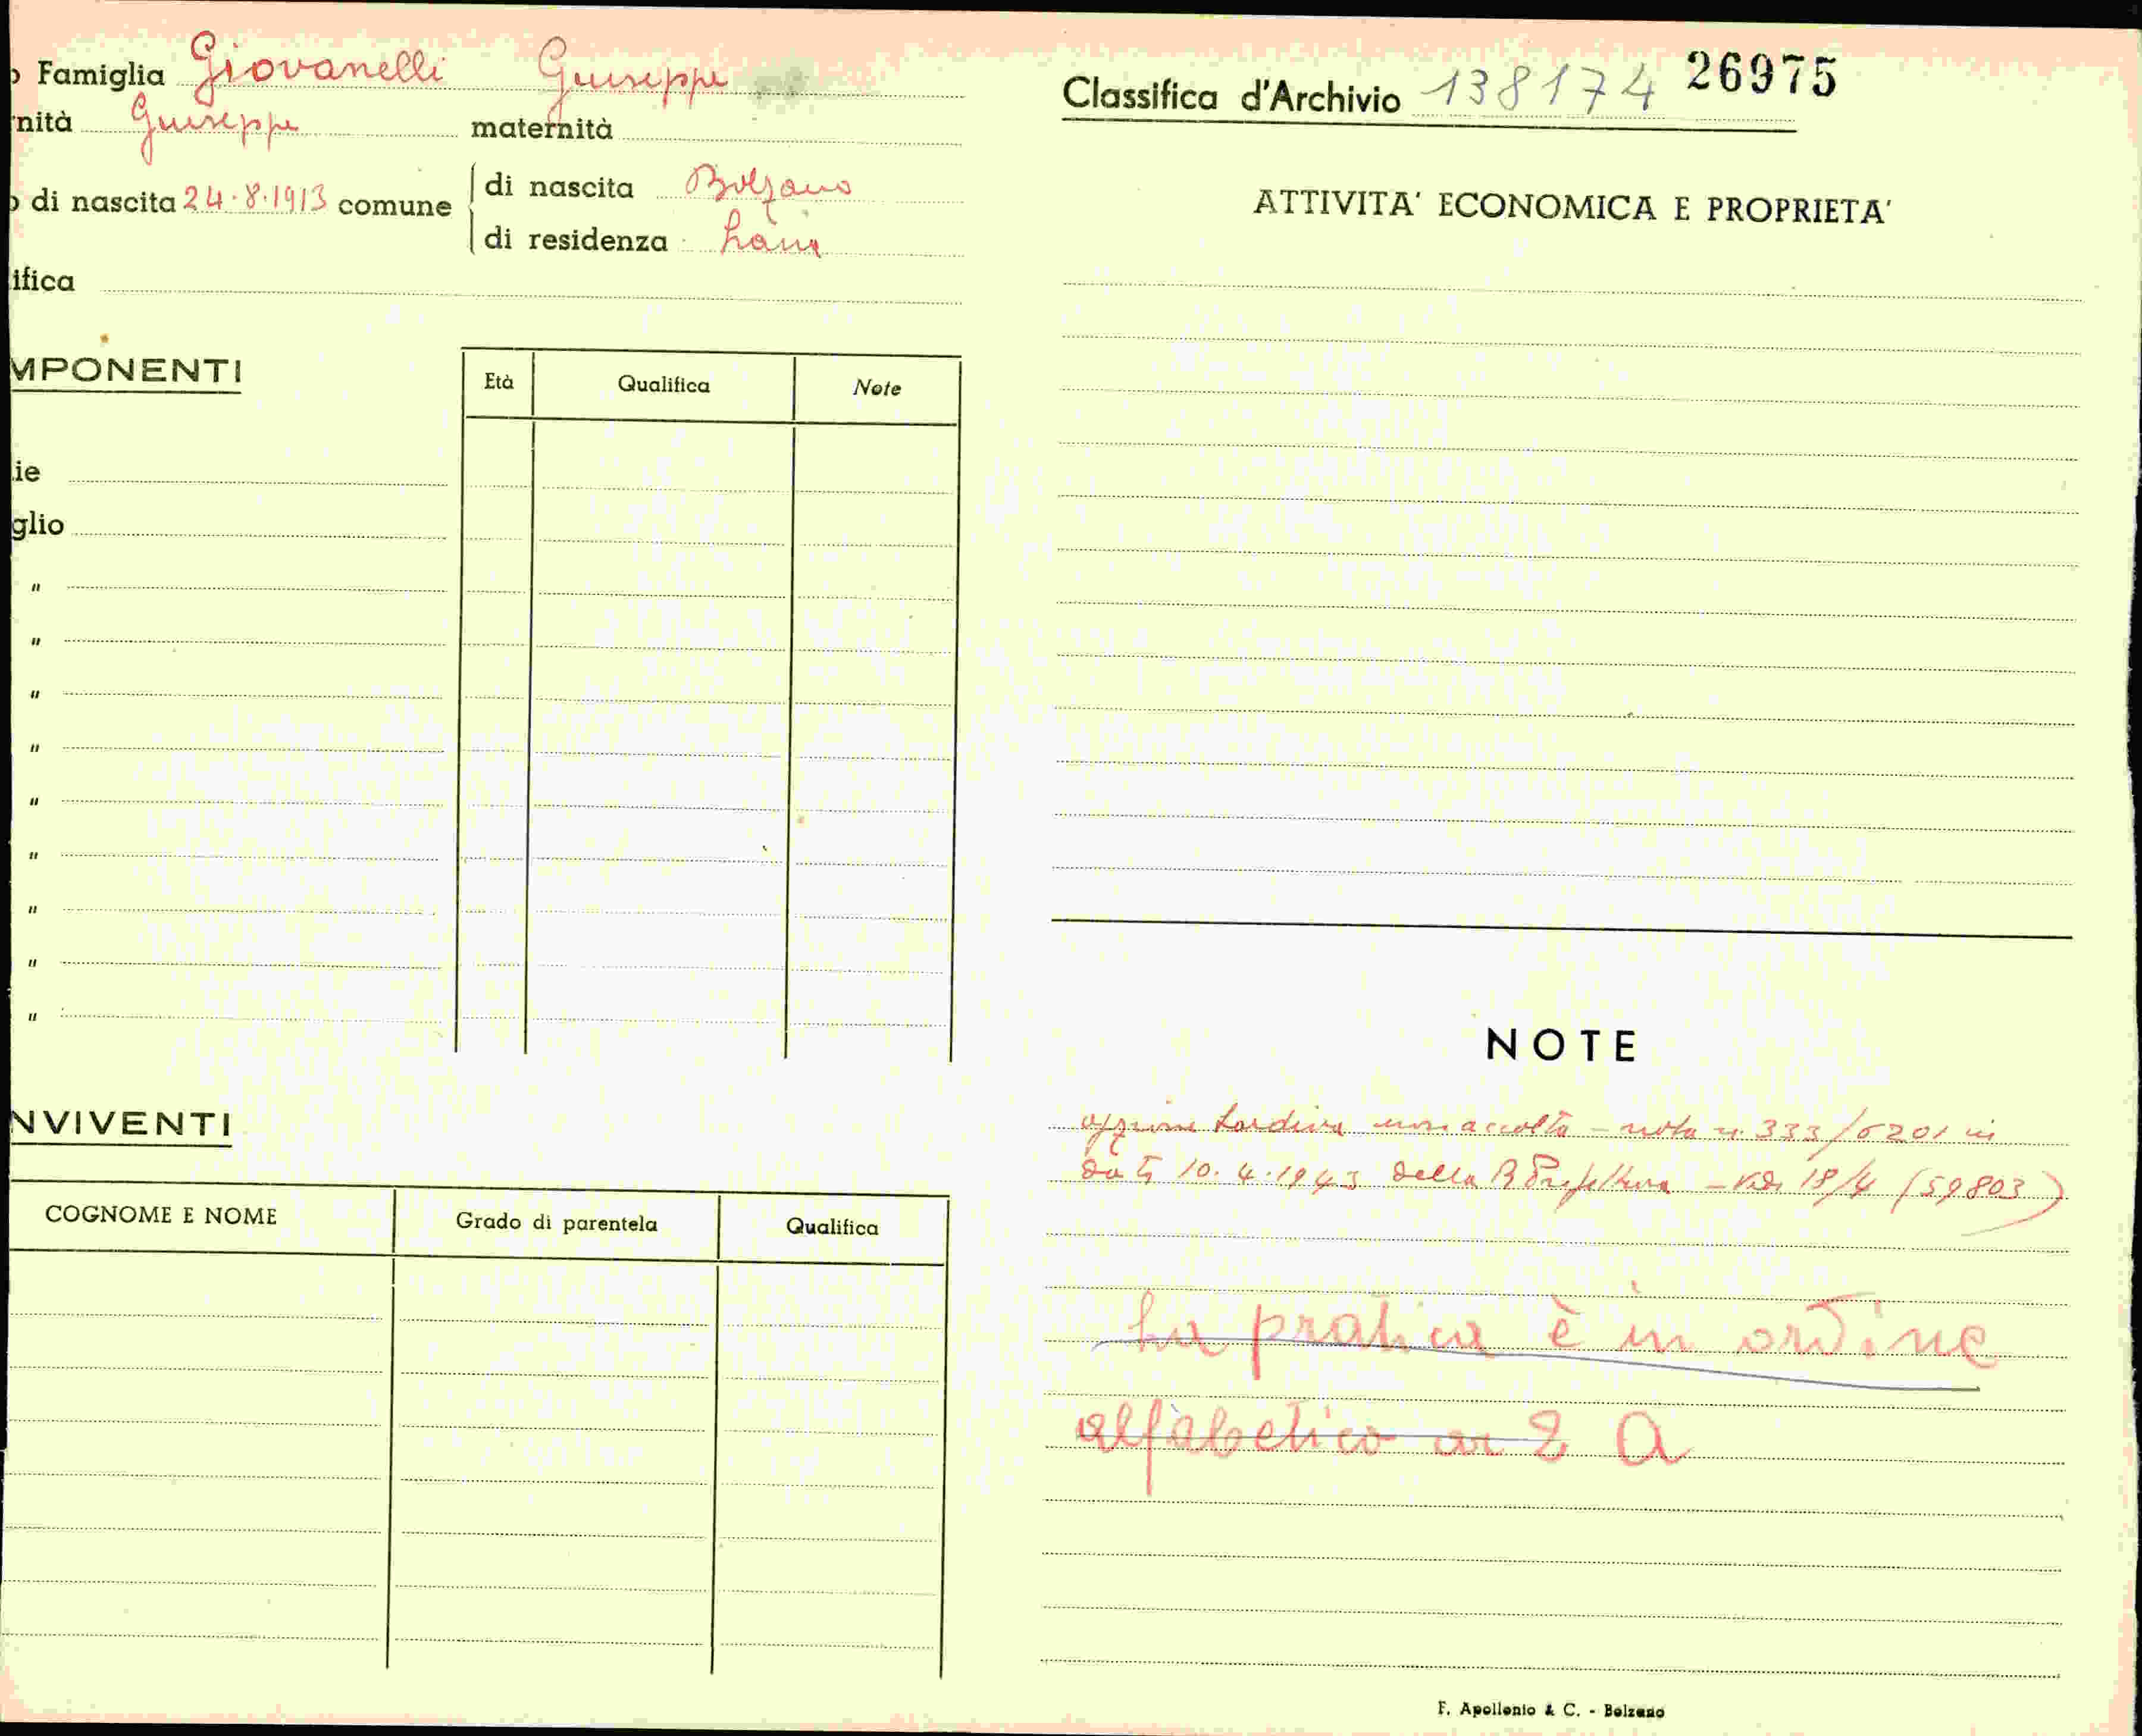 o Famiglia Giovanelli Giuseppe
nità Giuseppe maternità
o di nascita 24.8.1913 comune di nascita Bolzano
di residenza Lana
ifica
MPONENTI
Età Qualifica Note
ie
glio
"
"
"
"
"
"
"
"
"
NVIVENTI
COGNOME E NOME Grado di parentela Qualifica
Classifica d'Archivio 138174 26975
ATTIVITA' ECONOMICA E PROPRIETA'
NOTE
opzione tardiva non accolta - nota n. 333/6201 in
data 10.4.1943 della R Prefettura - 18/4 (59803)
La pratica è in ordine
alfabetico ai 2 A
F. Apollonio & C. - Bolzano